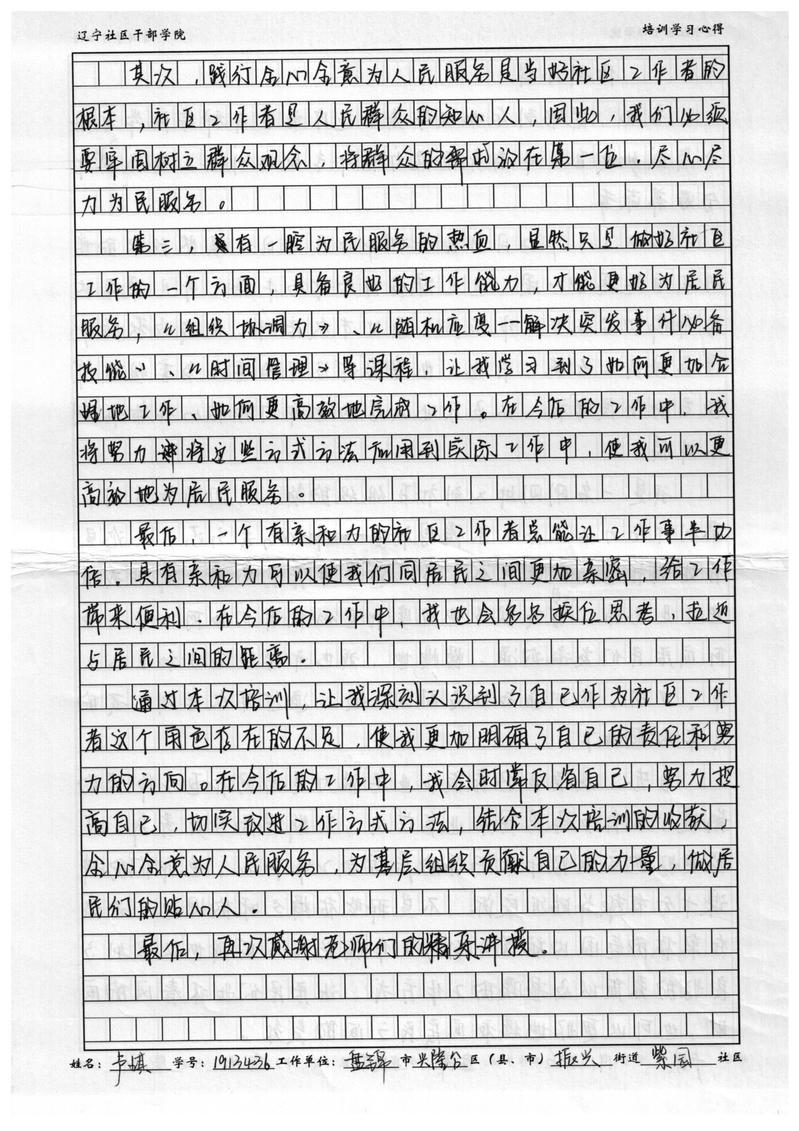 辽宁社区干部学院 培训学习心得
其次，践行全心全意为人民服务是当好社区工作者的
根本，社区工作者是人民群众的知心人，因此，我们必须
要牢固树立群众观念，将群众的需求放在第一位，尽心尽
力为民服务。
第三，具有一腔为民服务的热血，显然只是做好社区
工作的一个方面，具备良好的工作能力，才能更好为居民
服务，《组织协调力》、《随机应变—解决突发事件必备
技能》、《时间管理》等课程，让我学习到了如何更加合
理地工作、如何更高效地完成工作。在今后的工作中，我
将努力将这些方式方法应用到实际工作中，使我可以更
高效地为居民服务。
最后，一个有亲和力的社区工作者总能让工作事半功
倍，具有亲和力可以使我们同居民之间更加亲密，给工作
带来便利，在今后的工作中，我也会多多换位思考，拉近
与居民之间的距离。
通过本次培训，让我深刻认识到了自己作为社区工作
者这个角色存在的不足，使我更加明确了自己的责任和努
力的方向。在今后的工作中，我会时常反省自己，努力提
高自己，切实改进工作方式方法，结合本次培训的收获
全心全意为人民服务，为基层组织贡献自己的力量，做居
民们的贴心人。
最后，再次感谢老师们的精采讲授。
姓名：卢 学号：1913436 工作单位：盘锦 市 兴隆台 区（县、市）振兴 街道 紫园 社区